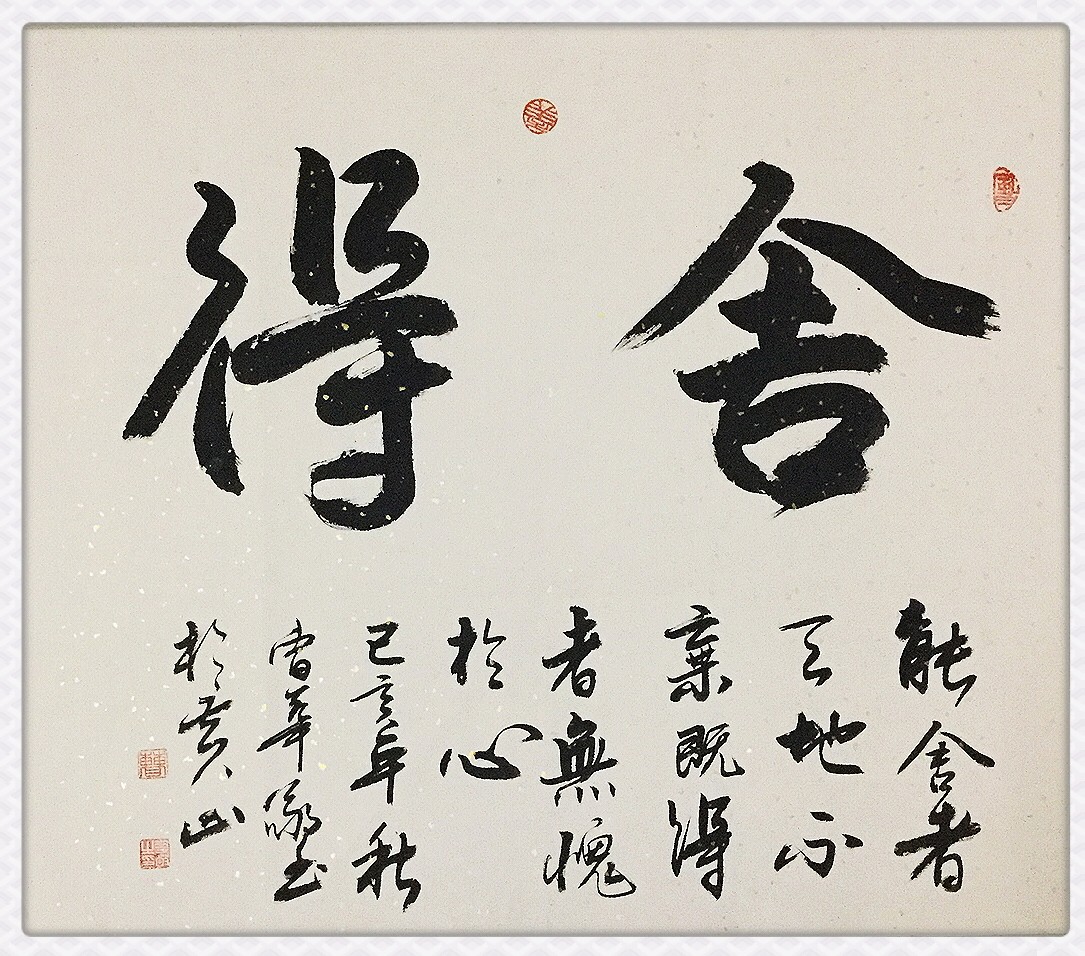 舍得
能舍者
天地不
棄既得
者無愧
於心
己亥年秋
曾華
於黄山